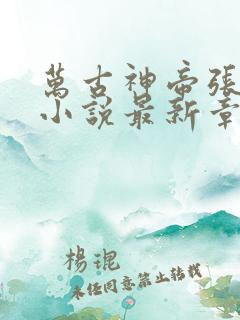 萬古神帝張
小説最新章
楊琨
未经同意禁止转载